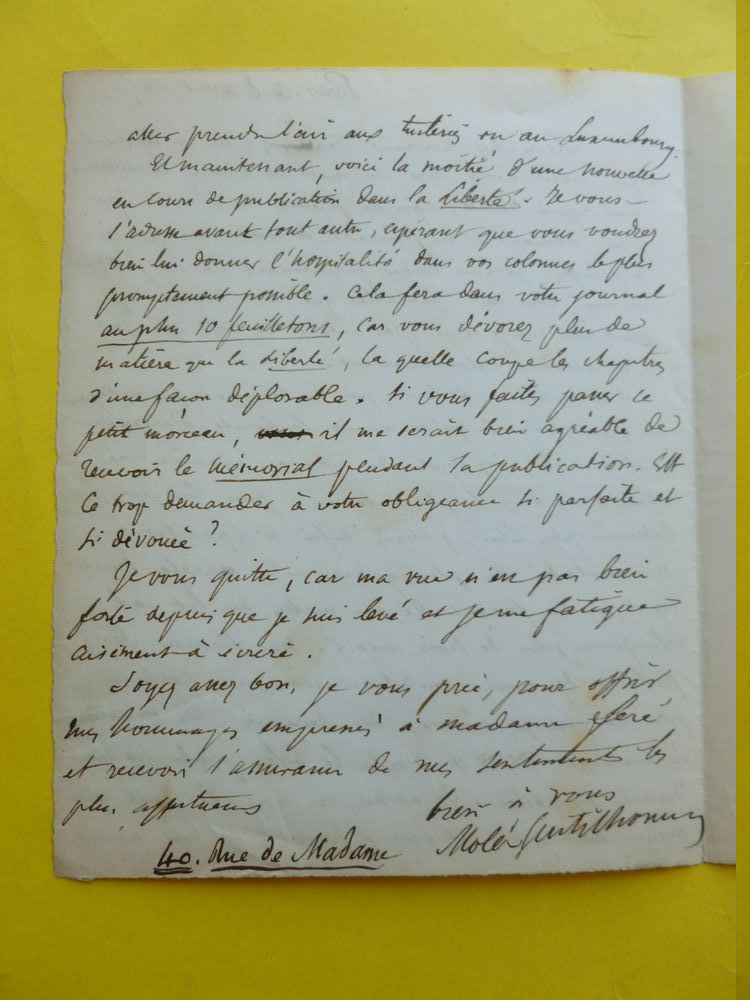 aller prendre l'air aux Tuileries ou au Luxembourg.
Et maintenant, voici la moitié d'une nouvelle
en cours de publication dans la Liberté. Je vous
l'adresse avant tout autre, espérant que vous voudrez
bien lui donner l'hospitalité dans vos colonnes le plus
promptement possible. Cela fera dans votre journal
au plus 10 feuilletons, car vous dévorez plus de
matière que la Liberté, la quelle coupe les chapitres
d'une façon déplorable. Si vous faites passer ce
petit morceau, il me serait bien agréable de
recevoir le Mémorial pendant sa publication. Est
ce trop demander à votre obligeance si parfaite et
si dévouée ?
Je vous quitte, car ma vue n'est pas bien
forte depuis que je suis levé et je me fatigue
aisément à écrire.
Soyez assez bon, je vous prie, pour offrir
mes hommages empressés à madame
et recevoir l'assurance de mes sentiments les
plus affectueux
bien à vous
Molé Gentilhomme
40. Rue de Madame